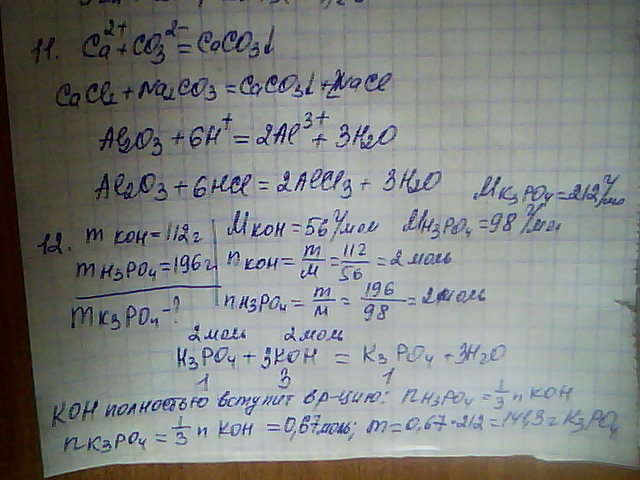 11. Ca²⁺ + CO₃²⁻ = CaCO₃↓
CaCl₂ + Na₂CO₃ = CaCO₃↓ + 2NaCl
Al₂O₃ + 6H⁺ = 2Al³⁺ + 3H₂O
Al₂O₃ + 6HCl = 2AlCl₃ + 3H₂O
M K₃PO₄ = 212 г/мо
12. m KOH = 112 г
m H₃PO₄ = 196 г
m K₃PO₄ - ?
M KOH = 56 г/мол M H₃PO₄ = 98 г/мол
n KOH = m/M = 112/56 = 2 моль
n H₃PO₄ = m/M = 196/98 = 2 моль
2 моль 2 моль
H₃PO₄ + 3KOH = K₃PO₄ + 3H₂O
1 3 1
KOH полностью вступит в р-цию: n H₃PO₄ = 1/3 n KOH
n K₃PO₄ = 1/3 n KOH = 0,67 моль; m = 0,67·212 = 141,3 г K₃PO₄